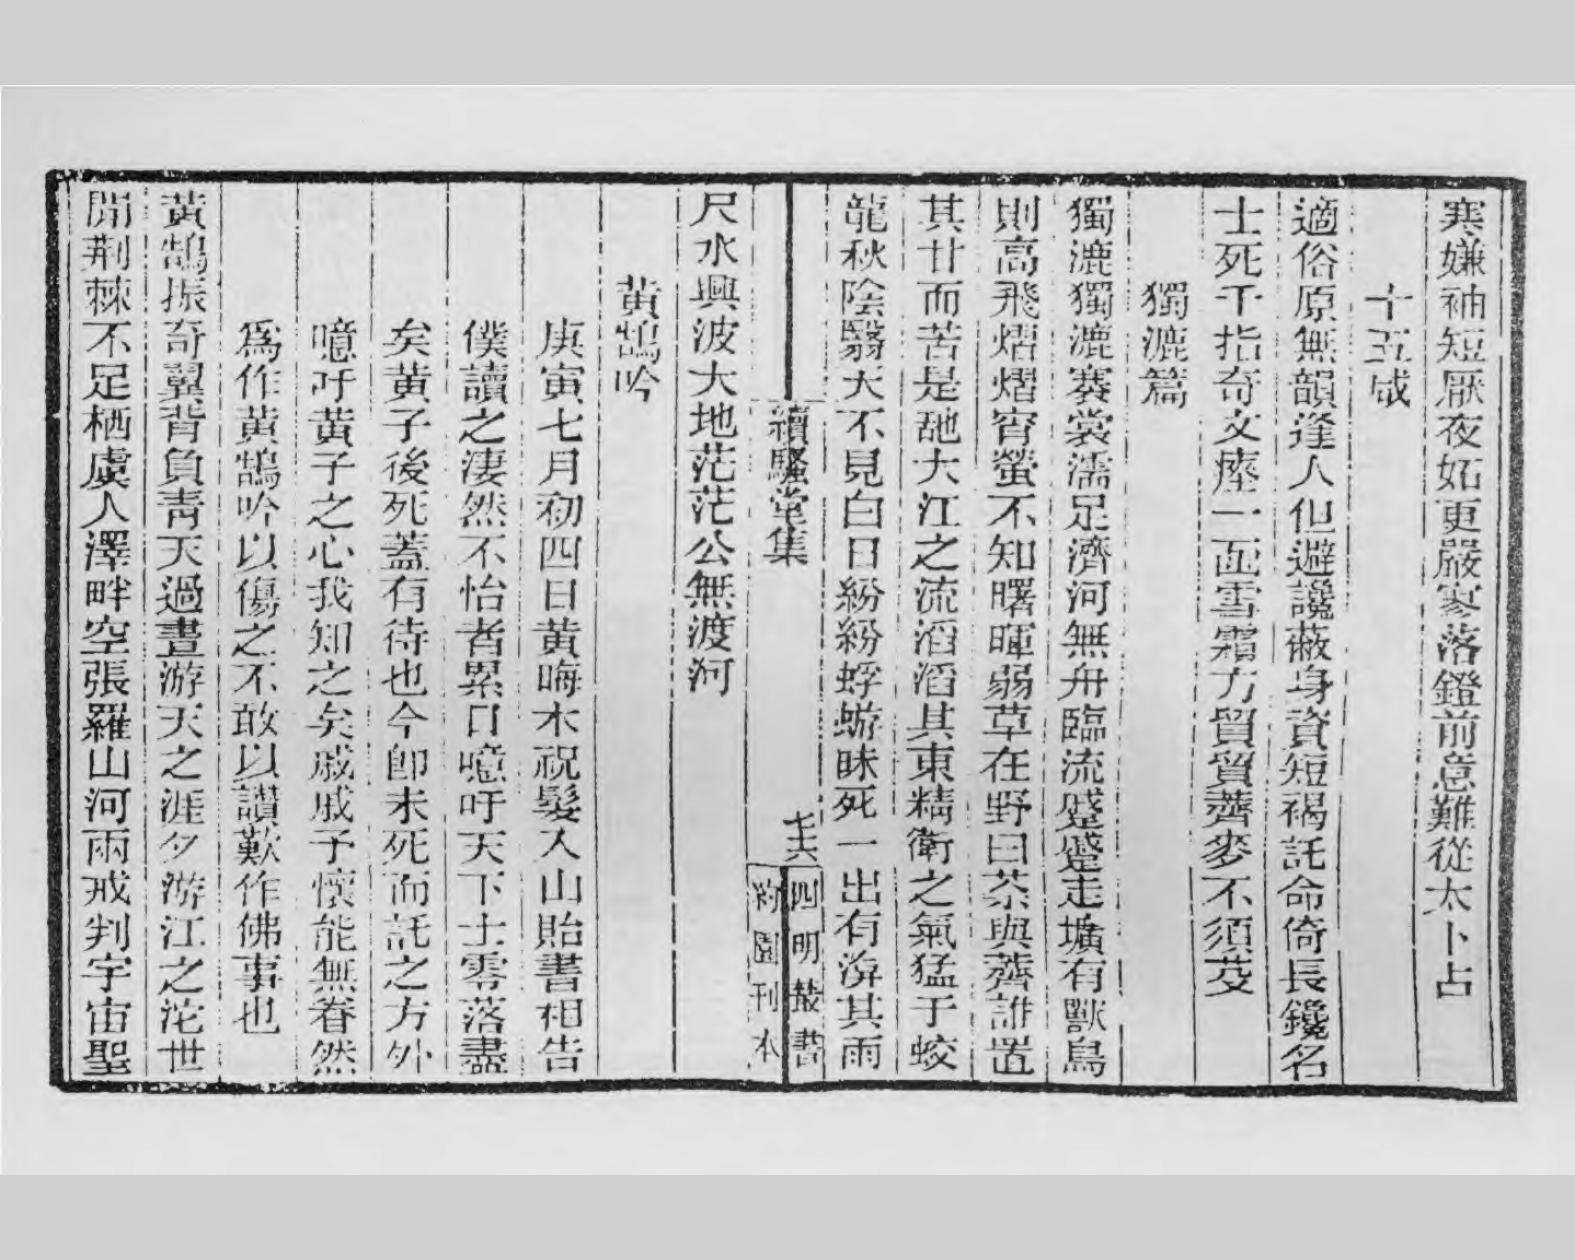 寒嫌袖短厭夜妬更嚴寥落鐙前意難從太卜占
十五咸
適俗原無韻逢人但避讒蔽身資短褐託命倚長鑱名
士死千指奇文瘞一函雪霜方貿貿薺麥不須芟
獨漉篇
獨漉獨漉褰裳濡足濟河無舟臨流蹙蹙走壙有獸鳥
則高飛熠熠宵螢不知曙暉弱草在野曰荼與薺誰置
其甘而苦是虵大江之流滔滔其東精衛之氣猛于蛟
龍秋陰翳天不見白日紛紛蜉蝣昧死一出有渰其雨
續騷堂集
七六
四明叢書
約園刊本
尺水興波大地茫茫公無渡河
黃鵠吟
庚寅七月初四日黃晦木祝髮入山貽書相告
僕讀之淒然不怡者累日噫吁天下士零落盡
矣黃子後死蓋有待也今卽未死而託之方外
噫吁黃子之心我知之矣戚戚予懷能無眷然
爲作黃鵠吟以傷之不敢以讚歎作佛事也
黃鵠振奇翼背負靑天過晝游天之涯夕游江之沱世
閒荆棘不足栖虞人澤畔空張羅山河兩戒判宇宙聖